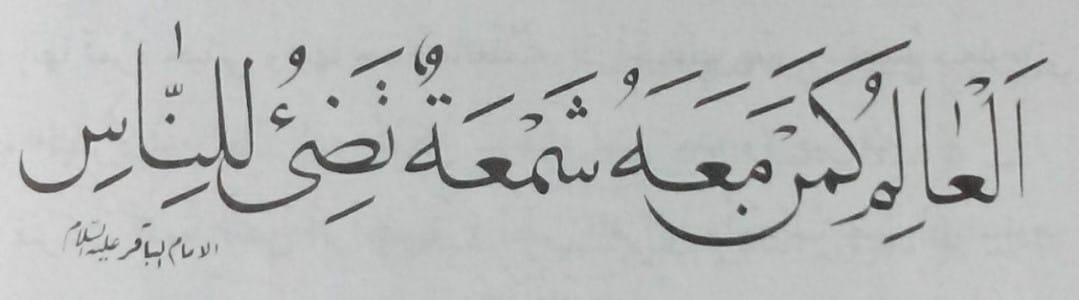 اَلْعٰالِمُ كَمَنْ مَعَهُ شَمْعَةٌ تُضَيِئُ لِلنّٰاسِ
الامام الباقر عليه السلام